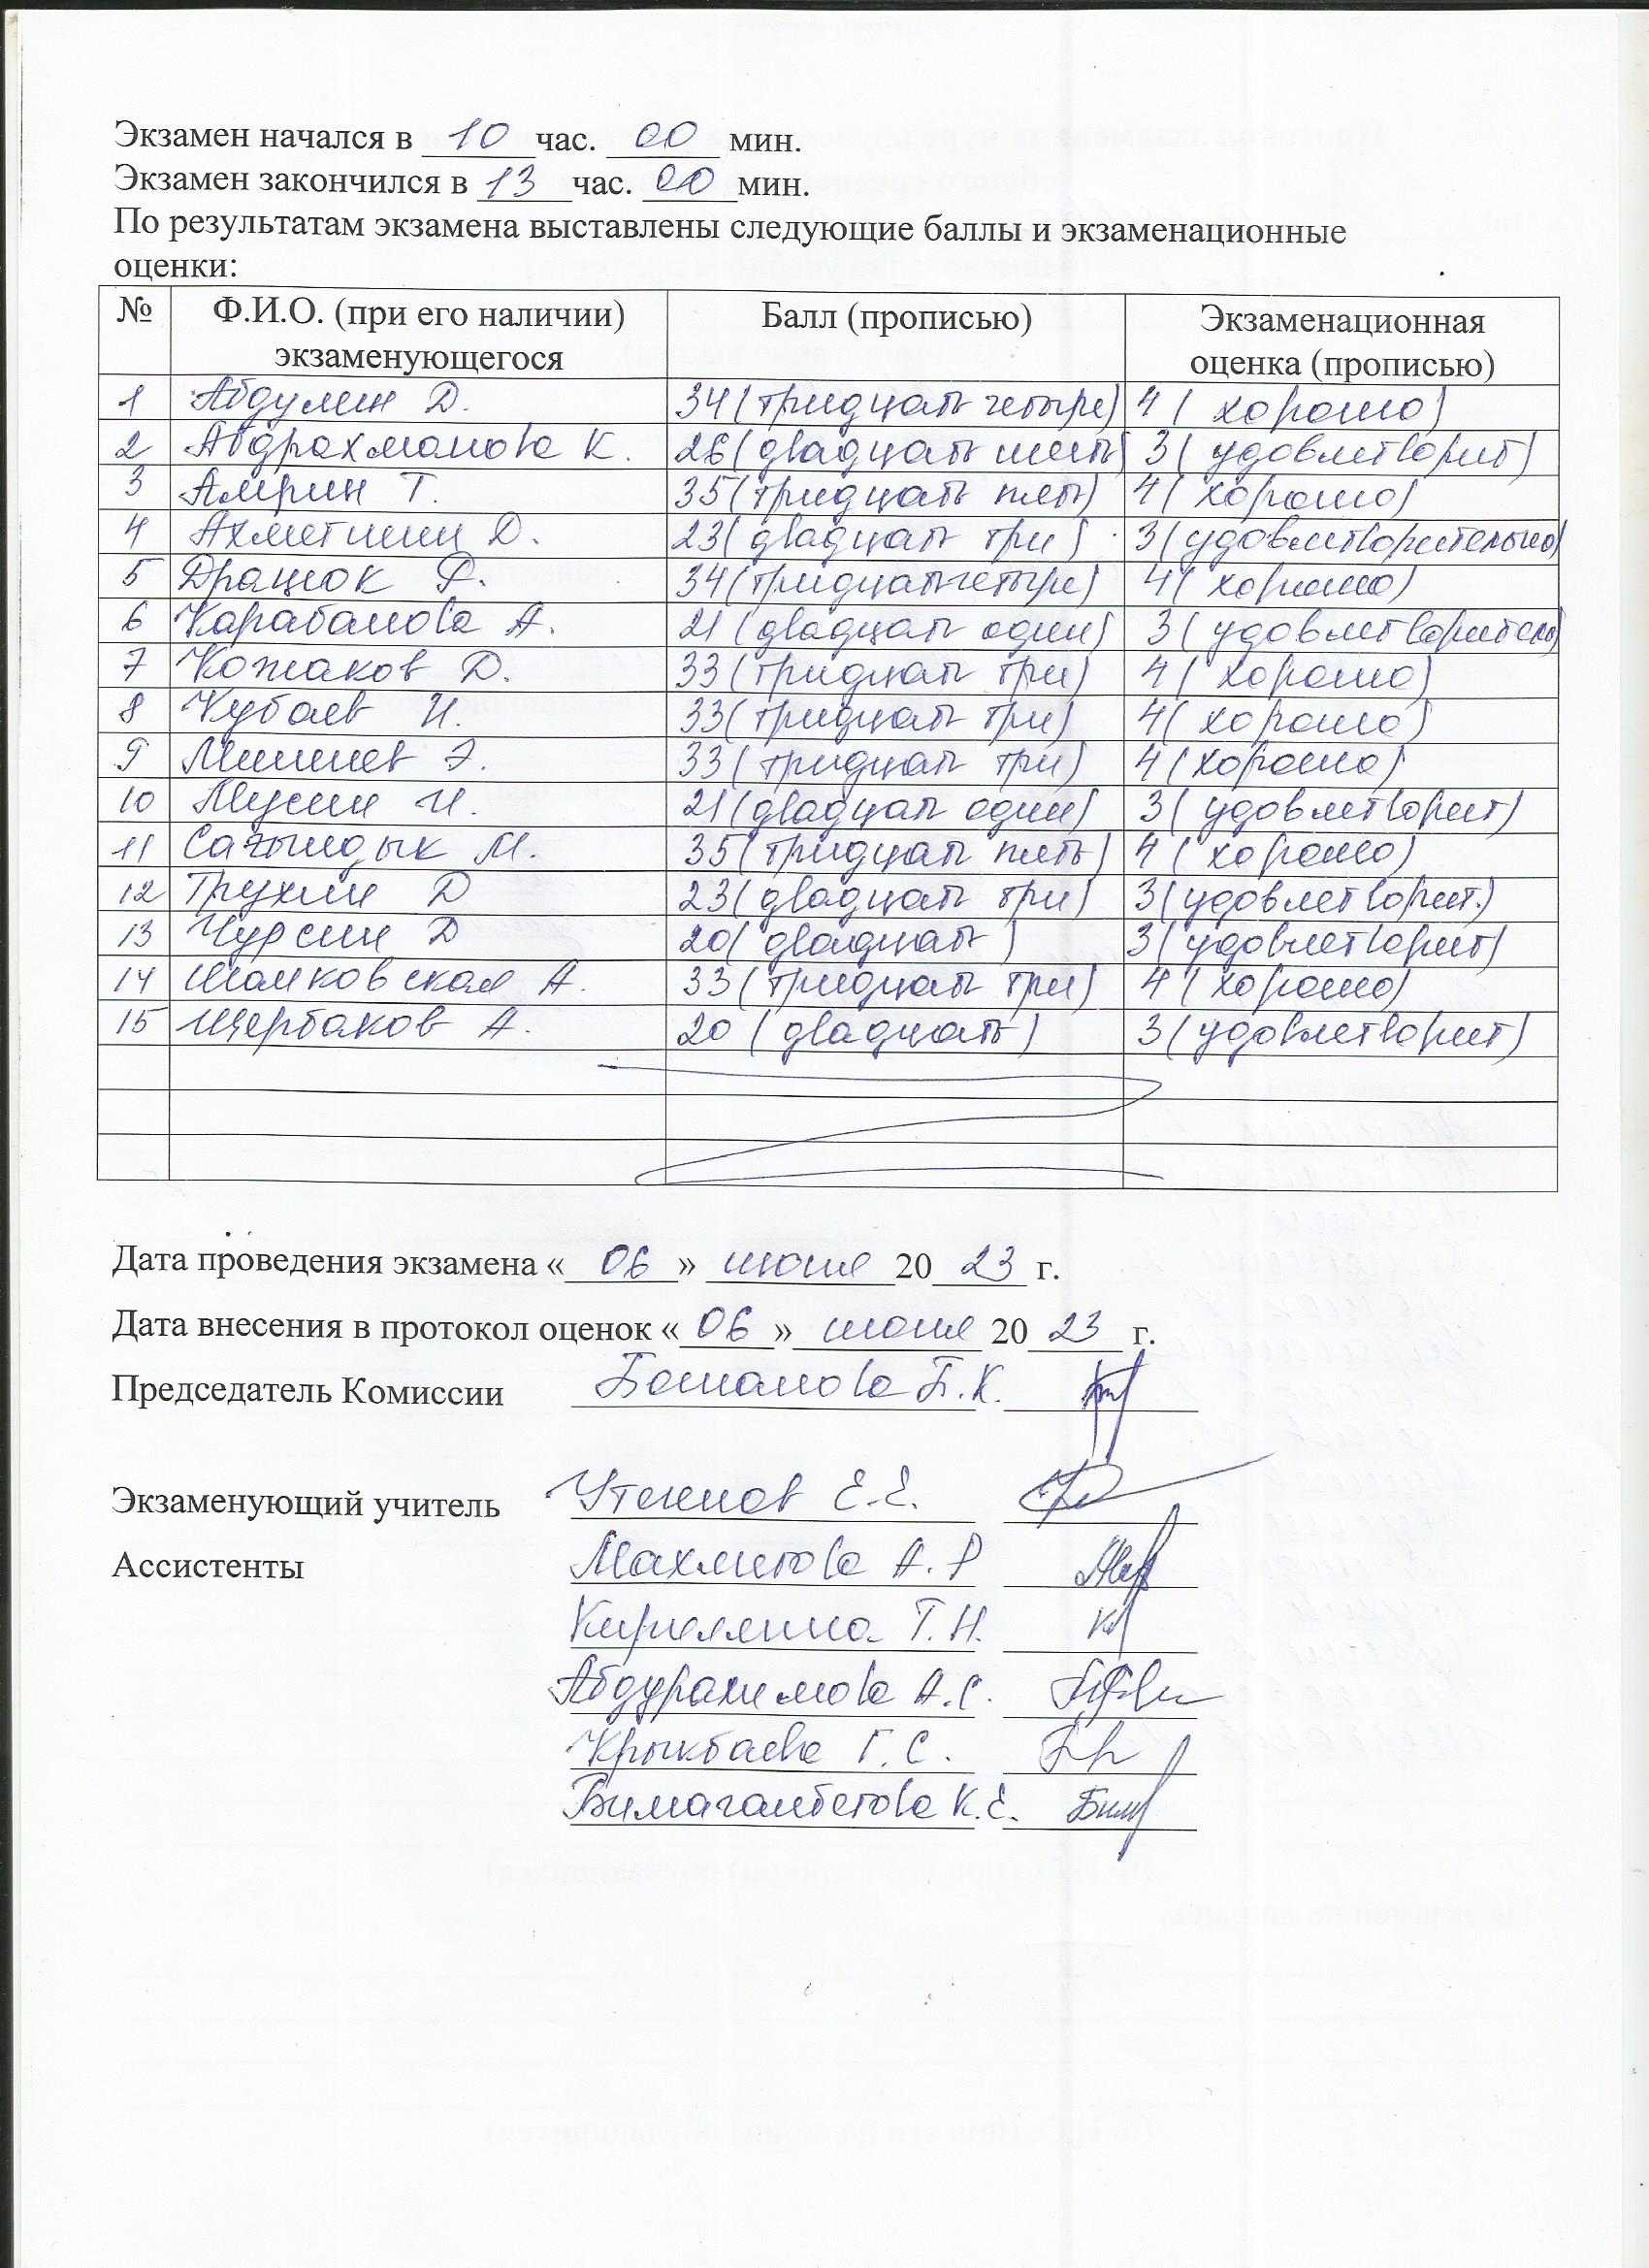 Экзамен начался в 10 час. 00 мин.
Экзамен закончился в 13 час. 00 мин.
По результатам экзамена выставлены следующие баллы и экзаменационные
оценки:
№ Ф.И.О. (при его наличии) экзаменующегося Балл (прописью) Экзаменационная оценка (прописью)
1 Абдулин Д. 34 (тридцать четыре) 4 (хорошо)
2 Абдрахманова К. 26 (двадцать шесть) 3 (удовлетворит)
3 Амрин Т. 35 (тридцать пять) 4 (хорошо)
4 Ахметшин Д. 23 (двадцать три) 3 (удовлетворительно)
5 Драцюк Р. 34 (тридцать четыре) 4 (хорошо)
6 Карабанова А. 21 (двадцать один) 3 (удовлетворительн)
7 Кожаков Д. 33 (тридцать три) 4 (хорошо)
8 Кубаев И. 33 (тридцать три) 4 (хорошо)
9 Миннев Э. 33 (тридцать три) 4 (хорошо)
10 Мусин И. 21 (двадцать один) 3 (удовлетворит)
11 Сағындык М. 35 (тридцать пять) 4 (хорошо)
12 Трухин Д 23 (двадцать три) 3 (удовлетворит.)
13 Чурсин Д 20 (двадцать) 3 (удовлетворит)
14 Шамковская А. 33 (тридцать три) 4 (хорошо)
15 Щербаков А. 20 (двадцать) 3 (удовлетворит)
Дата проведения экзамена «06» июня 2023 г.
Дата внесения в протокол оценок «06» июня 2023 г.
Председатель Комиссии Ботанова Б.К.
Экзаменующий учитель Утенов Е.Е.
Ассистенты Махметова А.Р
Кириллина Т.Н.
Абдурахимова А.С.
Крыкбаева Г.С.
Бимагамбетова К.Е.